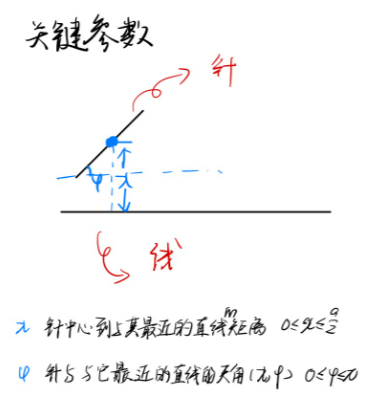 关键参数
针
φ
x
线
m
x 针中心到与其最近的直线距离 0≤x≤a/2
φ 针与与它最近的直线的夹角(x φ) 0≤φ≤π